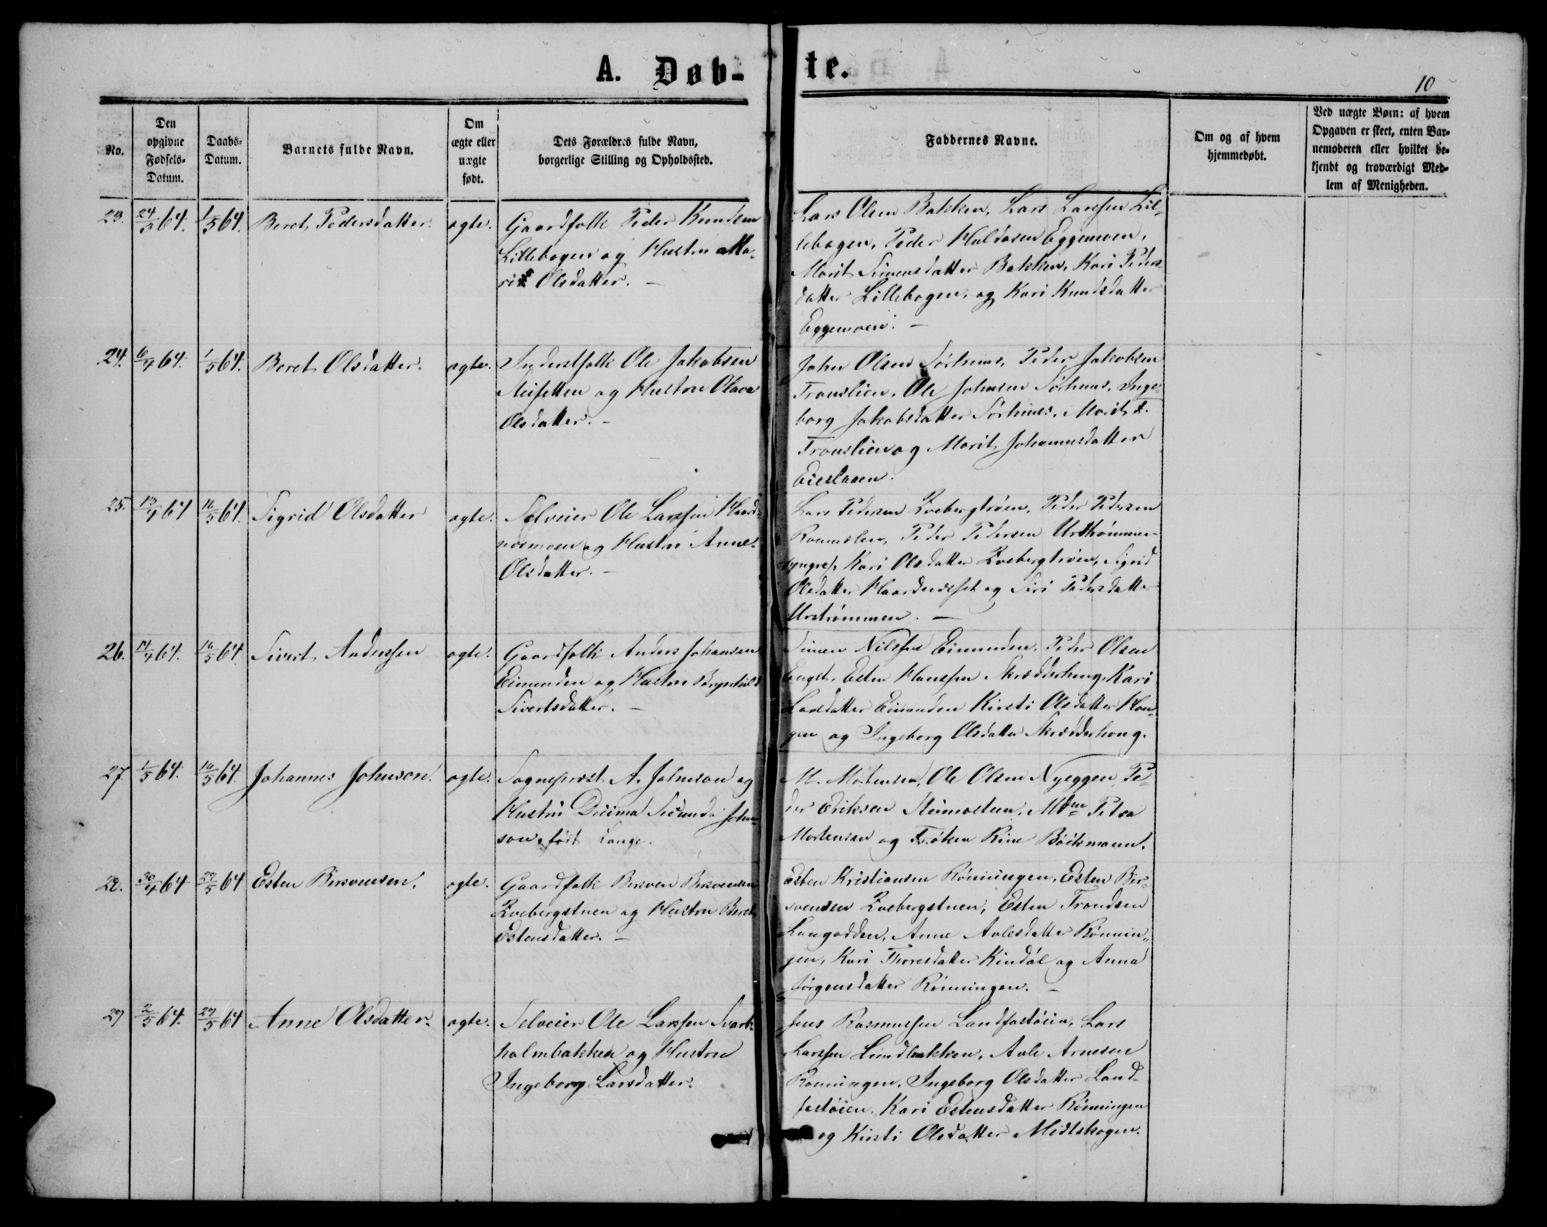 A. Døb-te.
10
No.
Den opgivne Fødsels-Datum.
Daabs-Datum.
Barnets fulde Navn.
Om ægte eller uægte født.
Dets Forældres fulde Navn, borgerlige Stilling og Opholdssted.
Faddernes Navne.
Om og af hvem hjemmedøbt.
Ved uægte Børn: af hvem Opgaven er skeet, enten Barnemoderen eller hvilket bekjendt og troværdigt Medlem af Menigheden.
23. 24/3 64. 1/5 64. Beret Pedersdatter. ægte.
Gaardfolk Peder Knudsen
Lillebogen og Hustru Ma-
rit Olsdatter. —
Lars Olsen Bakken, Lars Larsen Lil-
lebogen, Peder Eggemoen,
Marit Simensdatter Bakken, Kari Peders-
datter Lillebogen, og Kari Knudsdatter
Eggemoen. —
24. 64. 1/5 64. Beret Olsdatter. ægte.
Inderstfolk Ole Jakobsen
og Hustru Olava
Olsdatter. —
John Olsen Sørhuus, Peder Jakobsen
Tronslien, Ole Johnsen Sørhuus, Inge-
borg Jakobsdatter Sørhuus, Marit
Tronslien og Marit Johannesdatter
25. 64 16/5 64. Sigrid Olsdatter ægte.
Selveier Ole Larssen
og Hustru Anne
Olsdatter. —
Lars Pedersen Peder Pedersen
Peder Pedersen
Kari Olsdatter Sigrid
Olsdatter og Siri Pedersdatter
26. 64. 16/5 64. Sivert Anderssen ægte.
Gaardfolk Anders Johansen
Eimunden og Hustru
Sivertsdatter. —
Simen Nilssen Eimunden, Peder Olsen
Engst, Esten Hanssen Kari
Larsdatter Eimunden Kirsti Olsdatter
og Ingeborg Olsdatter
27 1/5 64. 16/5 64. Johannes Johnson. ægte.
Sogneprest A. Johnson og
Hustru Decima Secunda John-
son, født Lange.
M. Mortensen, Ole Olsen Nyeggen, Pe-
der Eriksen Petra
Mortensen og Frøken Rine Bockmann.
28. 30/4 64 29/5 64 Esten Bersvensen. ægte.
Gaardfolk Bersven Bersvensen
og Hustru Beret
Estensdatter. —
Esten Kristiansen Rønningen, Esten Ber-
svensen Esten Trondsen
Langodden, Anne Avlesdatter Rønnin-
gen, Kari Thoresdatter Kindøl og Anna
Jørgensdatter Rønningen. —
29 64. 29/5 64 Anne Olsdatter. ægte.
Selveier Ole Larssen Svart-
holmbakken og Hustru
Ingeborg Larsdatter.
Jens Rasmussen Landfastøien, Lars
Larssen Lundbakken, Avle Arnesen
Rønningen, Ingeborg Olsdatter Land-
fastøien, Kari Estensdatter Rønningen
og Kirsti Olsdatter Midtskogen.